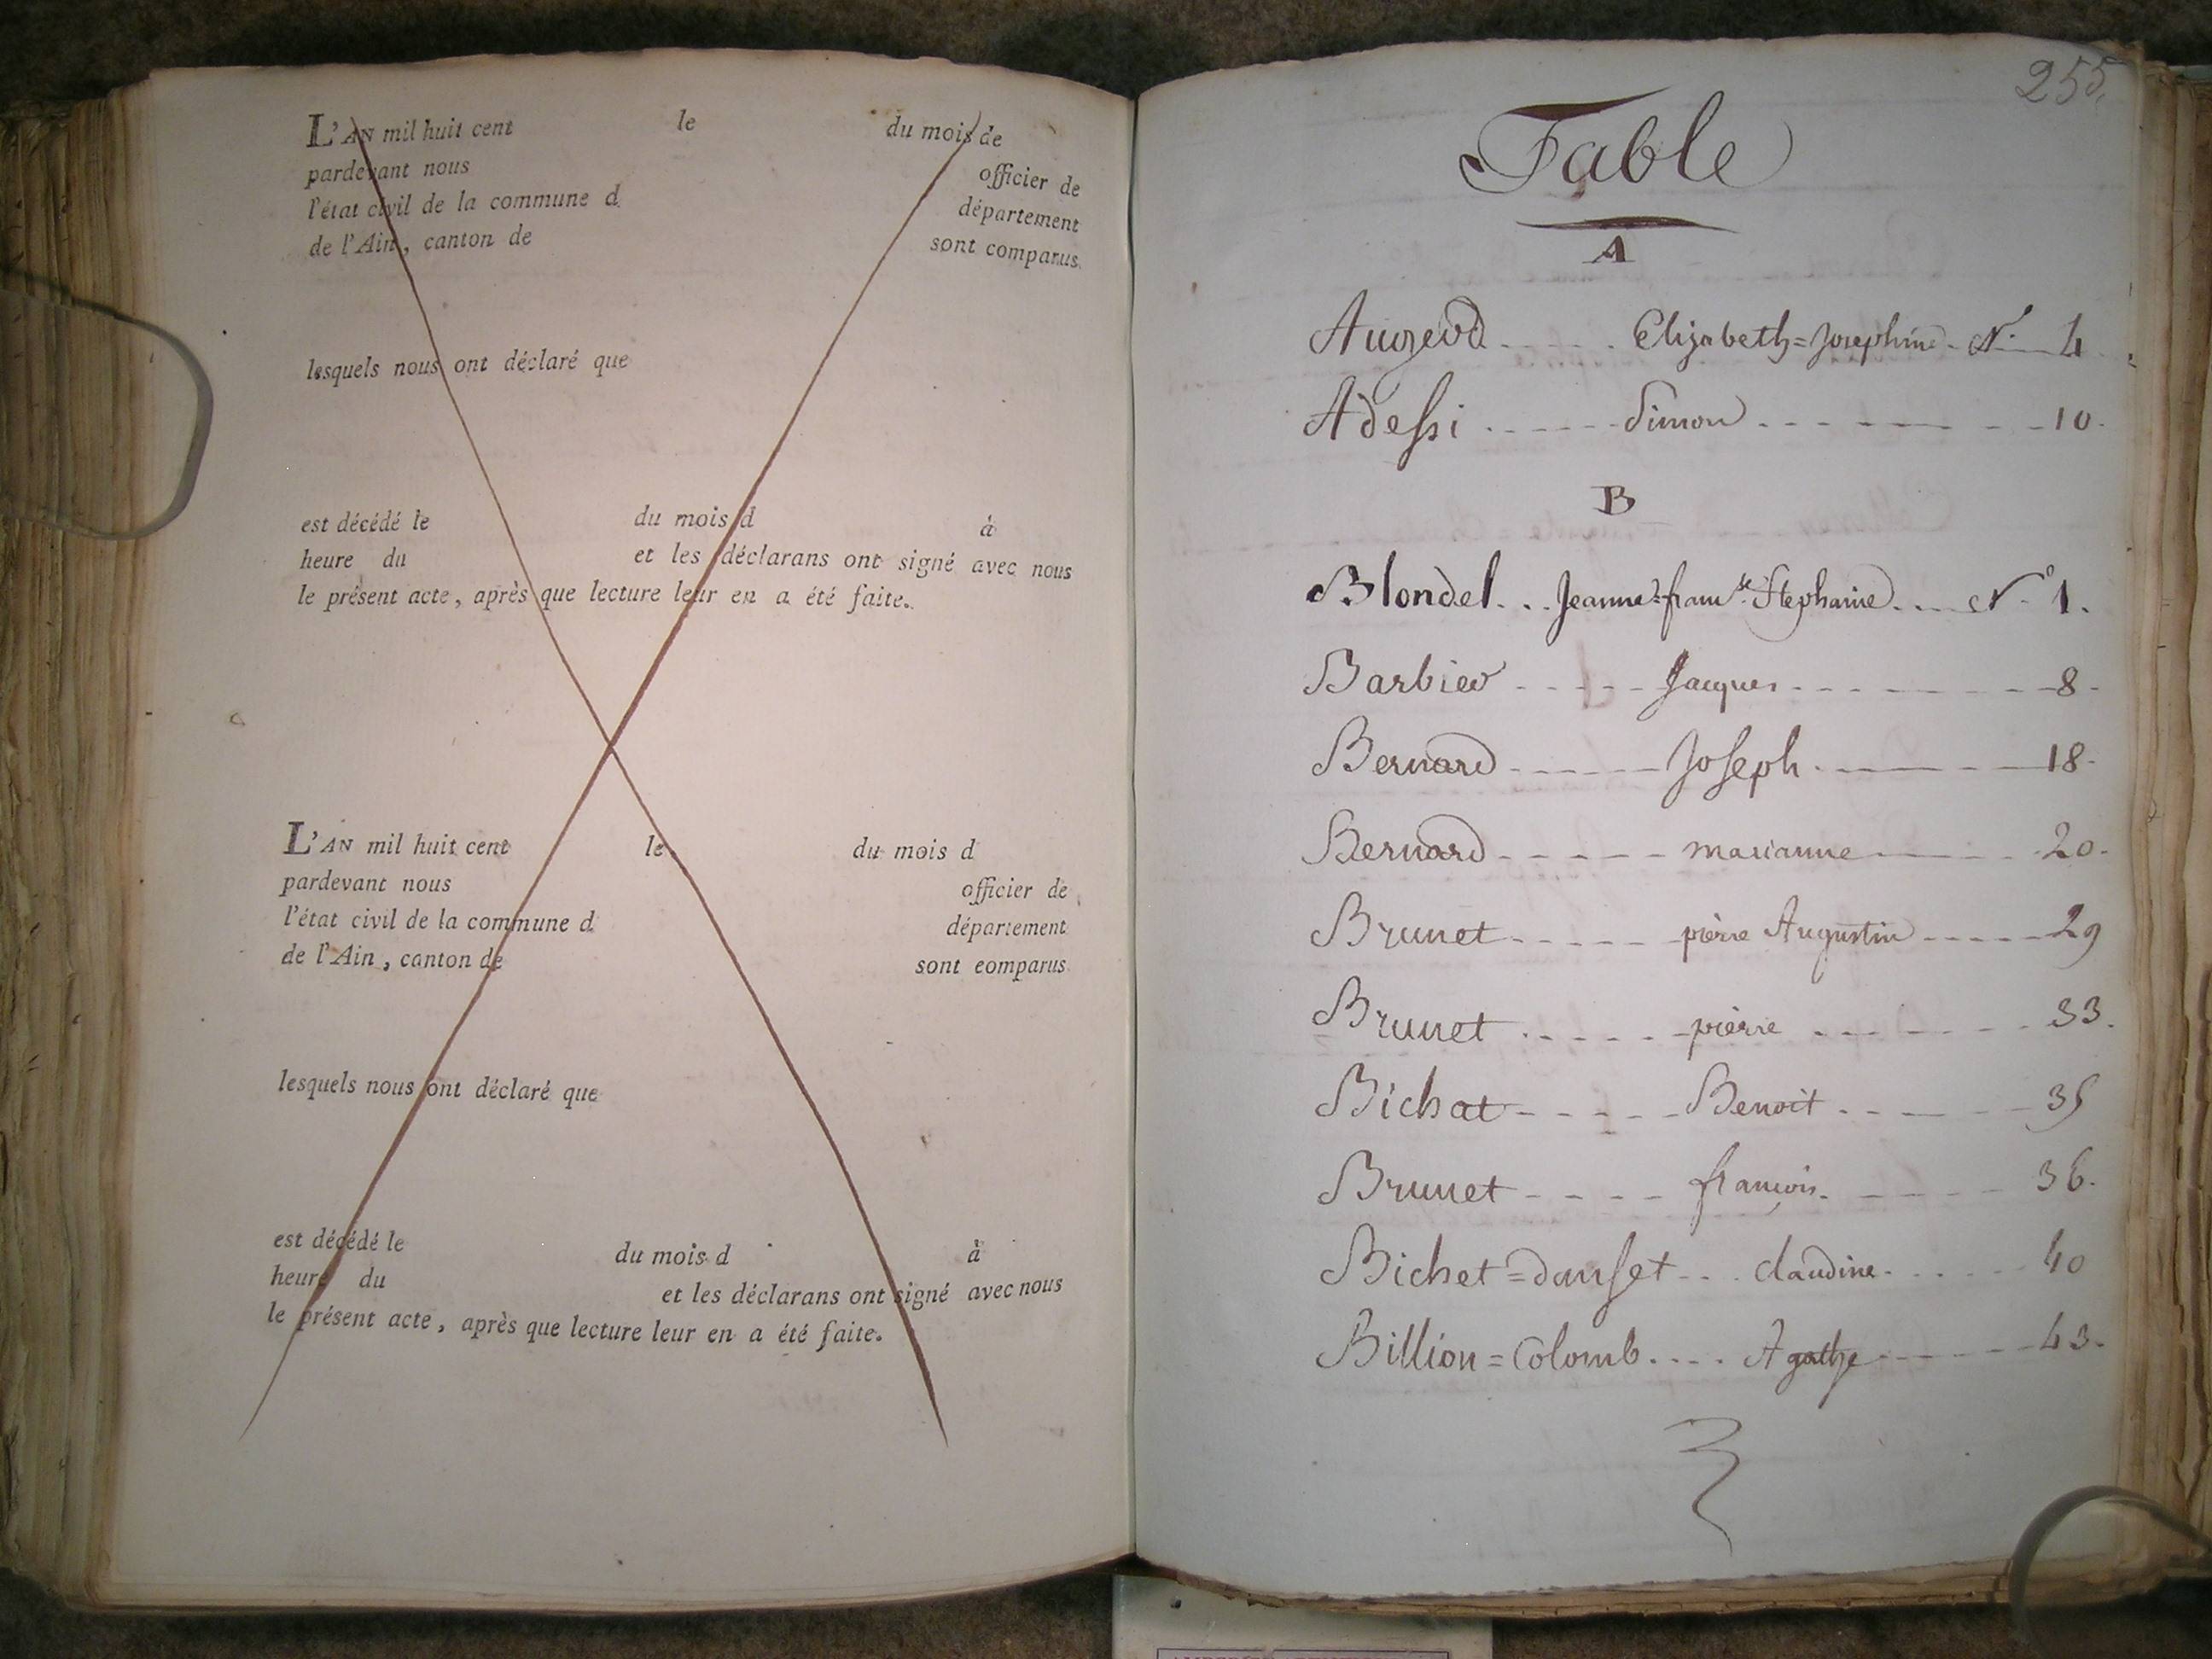 L'AN mil huit cent le du mois de
pardevant nous officier de
l'état civil de la commune d département
de l'Ain, canton de sont comparus
lesquels nous ont déclaré que
est décédé le du mois d à
heure du et les déclarans ont signé avec nous
le présent acte, après que lecture leur en a été faite.
L'AN mil huit cent le du mois d
pardevant nous officier de
l'état civil de la commune d département
de l'Ain, canton de sont eomparus
lesquels nous ont déclaré que
est décédé le du mois d à
heure du et les déclarans ont signé avec nous
le présent acte, après que lecture leur en a été faite.
255.
Table
A
Augerd Elizabeth=Josephine N° 4
Adessi Simon 10.
B
Blondel Jeanne=franse Stephanie N° 1.
Barbier Jacques 8
Bernard Joseph 18
Bernard marianne 20.
Brunet pierre Augustin 29
Brunet pierre 33.
Bichat Benoit 35
Brunet françois 36.
Bichet=danset claudine 40
Billion=Colomb Agathe 43.